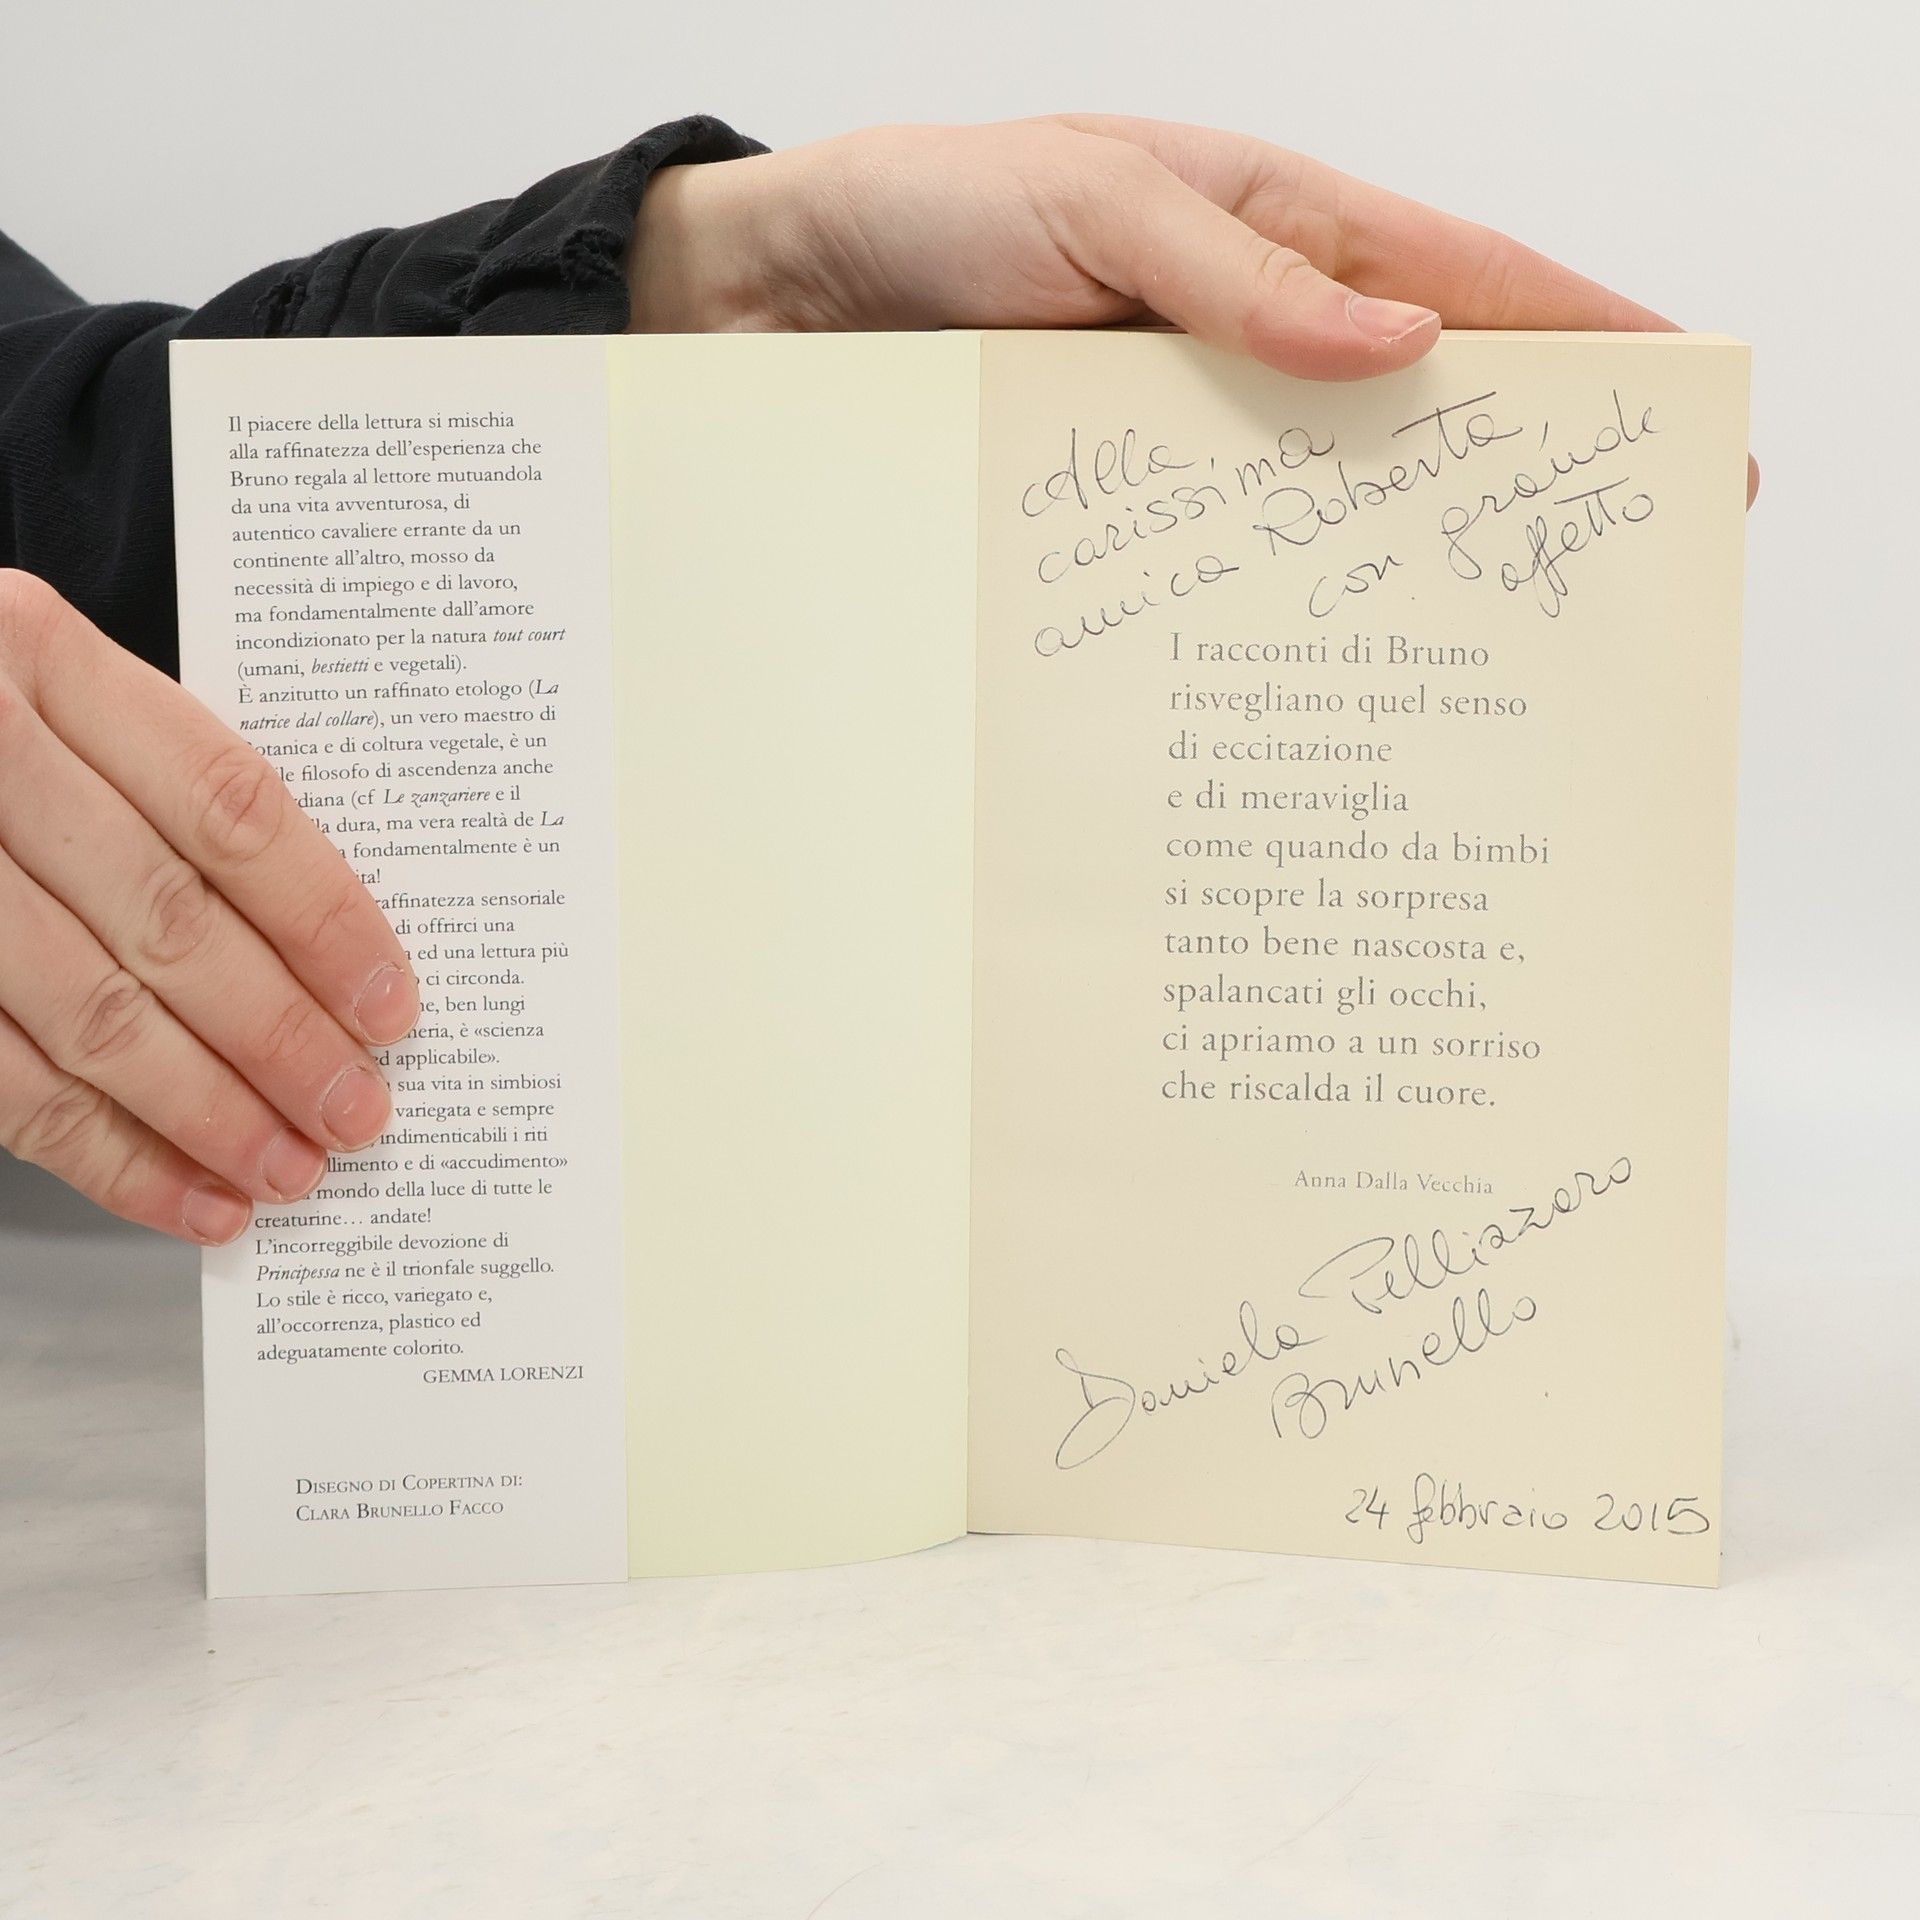 Il piacere della lettura si mischia
alla raffinatezza dell'esperienza che
Bruno regala al lettore mutuandola
da una vita avventurosa, di
autentico cavaliere errante da un
continente all'altro, mosso da
necessità di impiego e di lavoro,
ma fondamentalmente dall'amore
incondizionato per la natura tout court
(umani, bestietti e vegetali).
È anzitutto un raffinato etologo (La
natrice dal collare), un vero maestro di
otanica e di coltura vegetale, è un
filosofo di ascendenza anche
(cf Le zanzariere e il
dura, ma vera realtà de La
fondamentalmente è un
raffinatezza sensoriale
di offrirci una
ed una lettura più
ci circonda.
ben lungi
è «scienza
ed applicabile».
sua vita in simbiosi
variegata e sempre
indimenticabili i riti
e di «accudimento»
mondo della luce di tutte le
creaturine… andate!
L'incorreggibile devozione di
Principessa ne è il trionfale suggello.
Lo stile è ricco, variegato e,
all'occorrenza, plastico ed
adeguatamente colorito.
GEMMA LORENZI
DISEGNO DI COPERTINA DI:
CLARA BRUNELLO FACCO
Alla
carissima
amica Roberta,
con grande
affetto
I racconti di Bruno
risvegliano quel senso
di eccitazione
e di meraviglia
come quando da bimbi
si scopre la sorpresa
tanto bene nascosta e,
spalancati gli occhi,
ci apriamo a un sorriso
che riscalda il cuore.
Anna Dalla Vecchia
Daniela Pellizzaro
Brunello
24 febbraio 2015